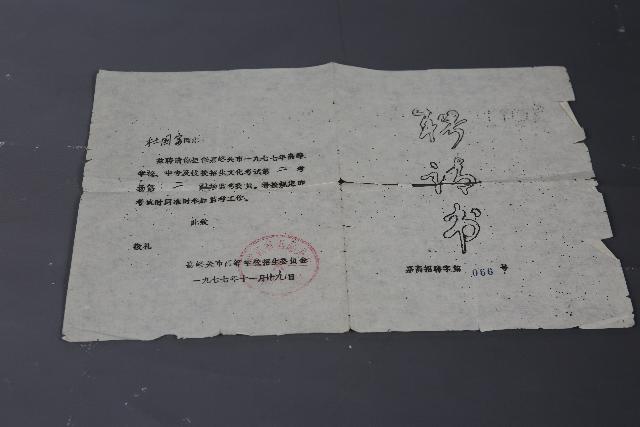 杜国富同志:
兹聘请你担任嘉峪关市一九七七年高等
学校、中专及技校招生文化考试第二考
场第二试场监考委员。请按规定的
考试时间准时参加监考工作。
此致
敬礼
嘉峪关市高等学校招生委员会
一九七七年十一月廿九日
聘请书
嘉高招聘字第066号